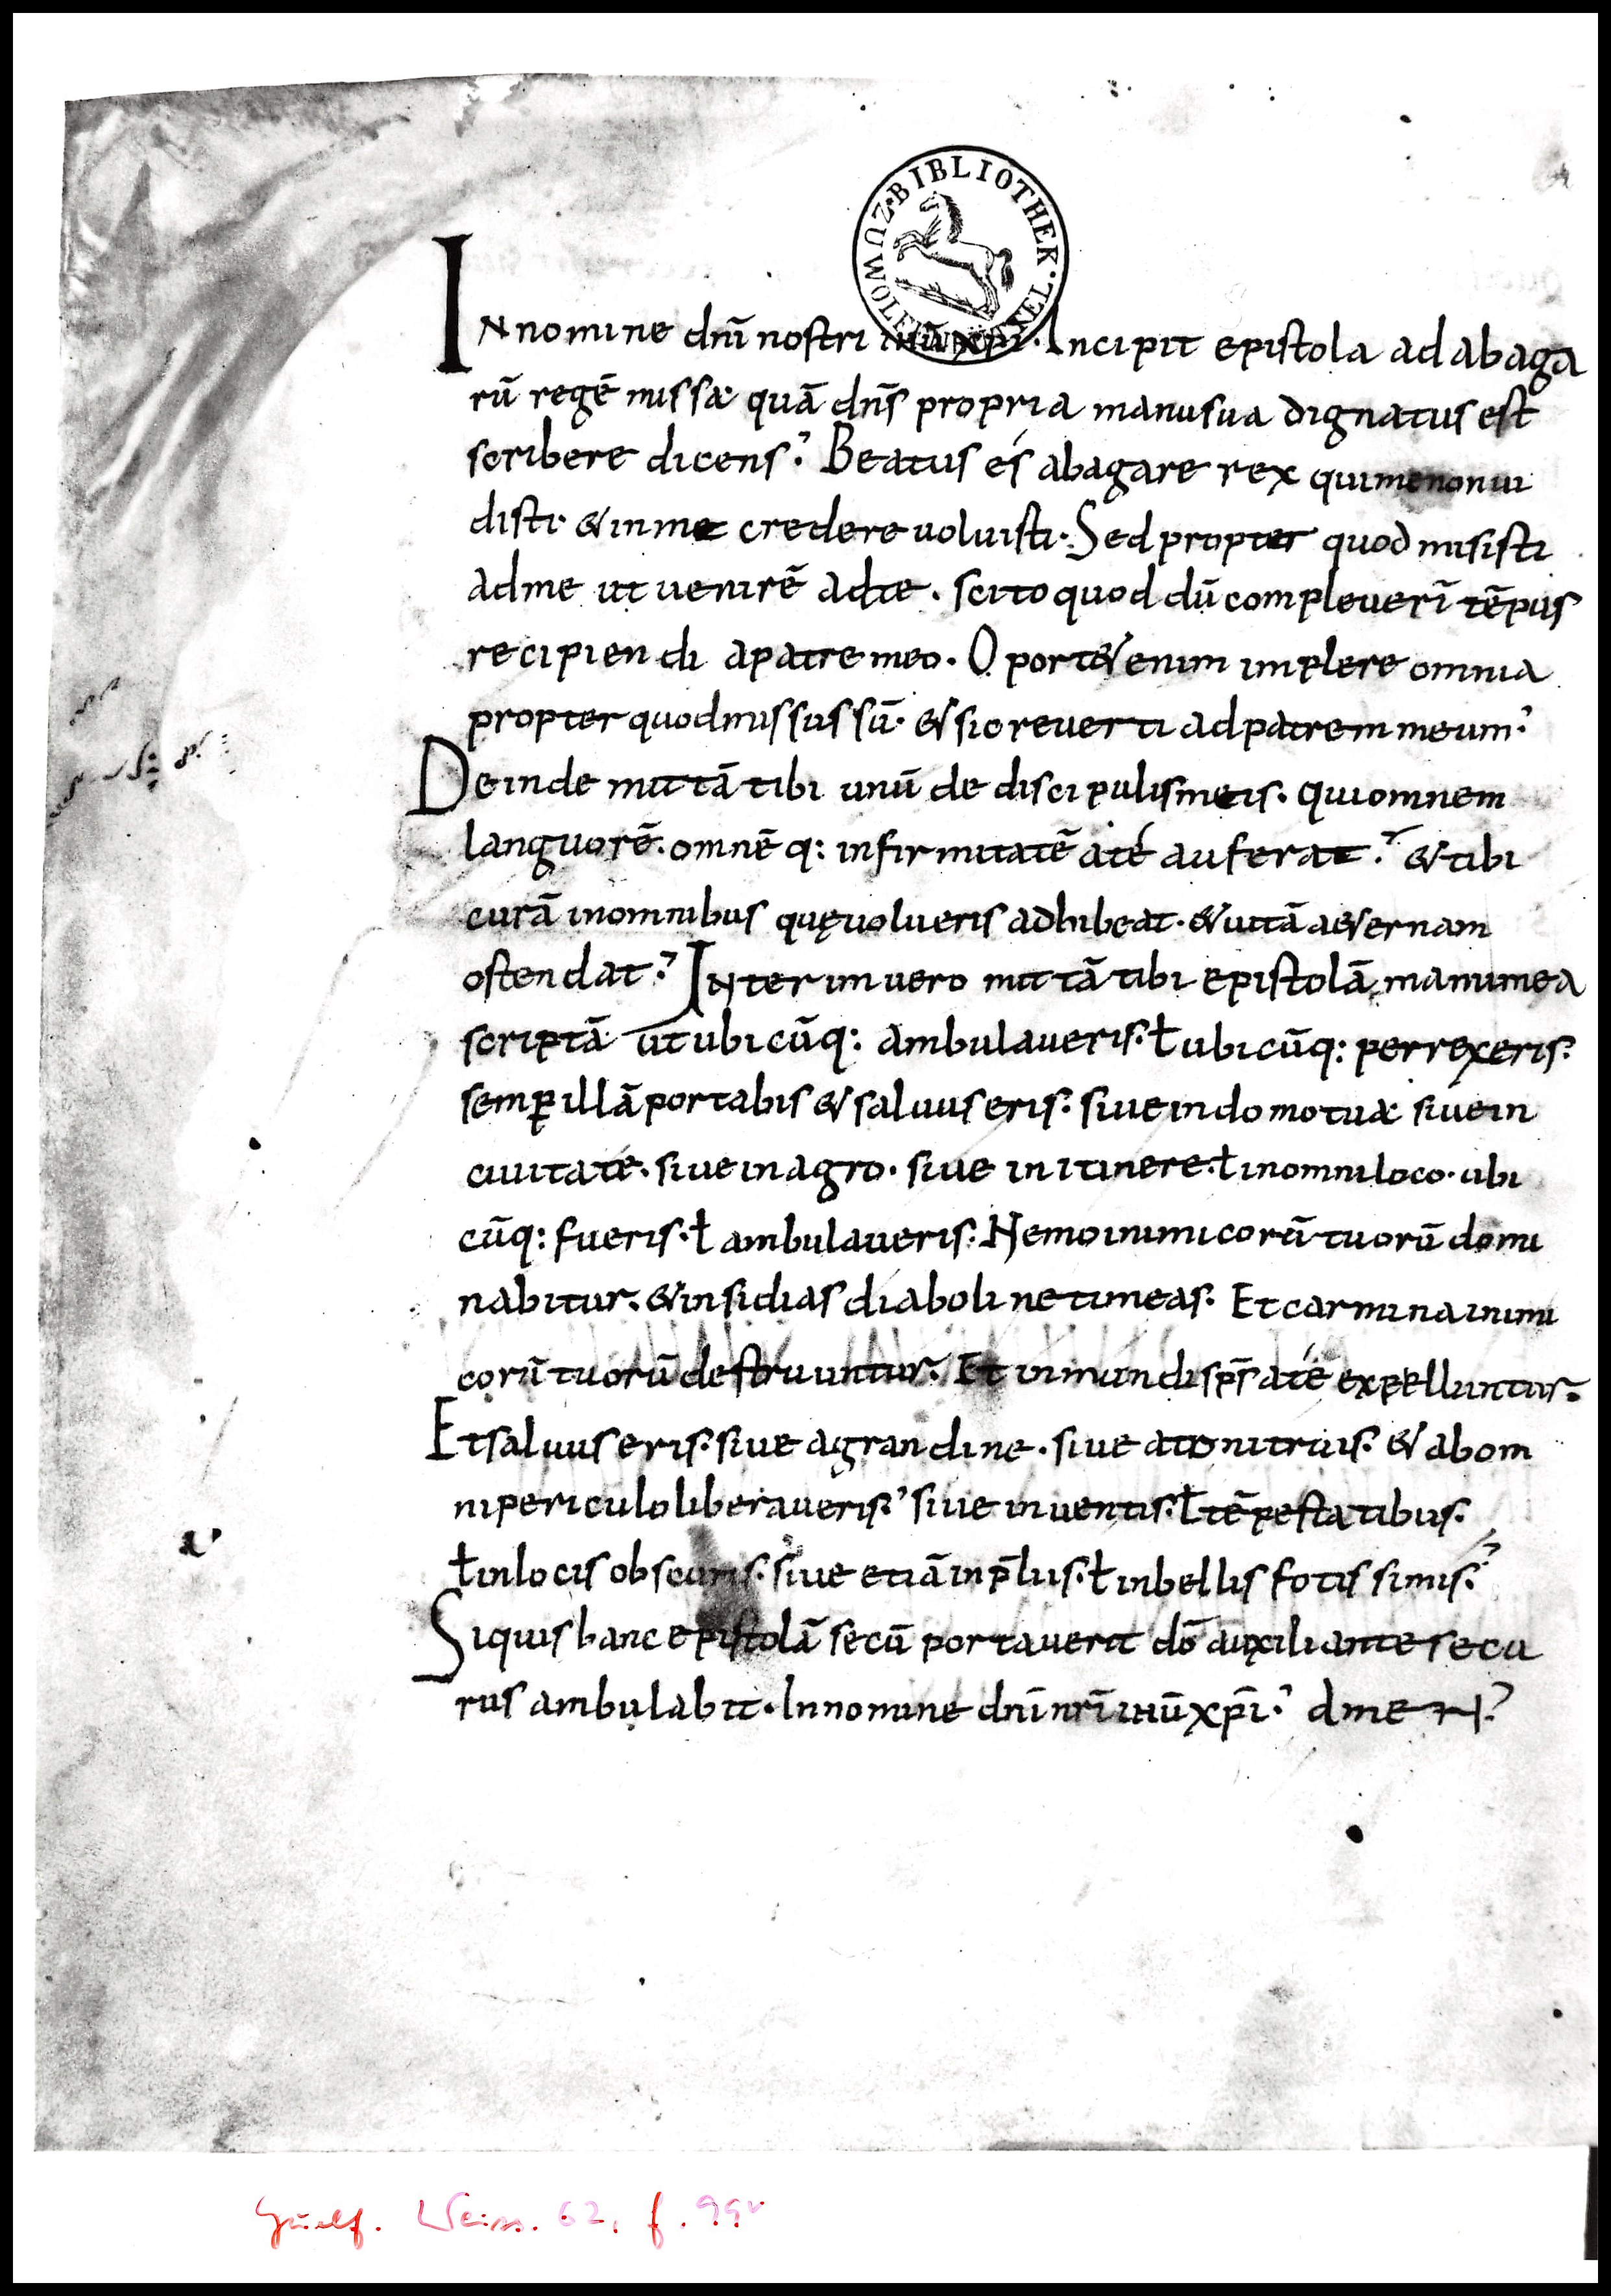 ZU WOLFENBÜTTEL · BIBLIOTHEK ·
IN nomine dnī nostri ihū xpi · Incipit epistola ad abaga
rū regē missa quā dns̄ propria manu sua dignatus est
scribere dicens · Beatus és abagare rex qui me non ui
disti · & in me credere uoluisti · Sed propter quod misisti
ad me ut uenirē ad te · scito quod dū compleuerī tēpus
recipiendi a patre meo · Oport& enim implere omnia
propter quod missus sū · & sic reuerti ad patrem meum ·
Deinde mittā tibi unū de discipulis meis · qui omnem
languorē · omnēq: infirmitatē a té auferat · & tibi
curā in omnibus quę uolueris adhibeat · & uitā a&ernam
ostendat · INterim uero mittā tibi epistolā manu mea
scriptā ut ubicūq: ambulaueris · ł ubicūq: perrexeris ·
semꝑ illā portabis & saluus eris · siue in domo tua siue in
ciuitate · siue in agro · siue in itinere · ł in omni loco · ubi
cūq: fueris · ł ambulaueris · Nemo inimicorū tuorū domi
nabitur · & insidias diaboli ne timeas · Et carmina inimi
corū tuorū destruuntur · Et inmundi sps̄ a té expelluntur ·
Et saluus eris · siue a grandine · siue a tonitruis · & ab om
ni periculo liberaueris · siue in uentis · ł tēpestatibus ·
ł in locis obscuris · siue etiā in p̄lus · ł in bellis fotissimis ·
Si quis hanc epistolā secū portauerit dō auxiliante secu
rus ambulabit · In nomine dnī nrī ihū xpī · amen ·
Guelf. Weiss. 62, f. 99v